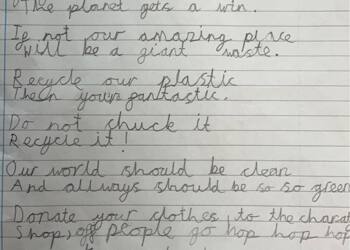 The planet gets a win.
If not our amazing place
Will be a giant waste.
Recycle our plastic
Then your fantastic.
Do not chuck it
Recycle it!
Our world should be clean
And allways should be so so green
Donate your clothes to the charat
Shop, off people go hop hop hop